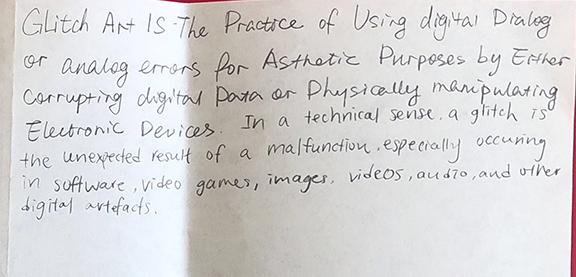 Glitch Art IS The Practice of Using digital Dialog
or analog errors for Asthetic Purposes by Either
Corrupting digital Data or Physically manipulating
Electronic Devices. In a technical sense, a glitch is
the unexpected result of a malfunction, especially occuring
in software, video games, images, videos, audio, and other
digital artefacts.